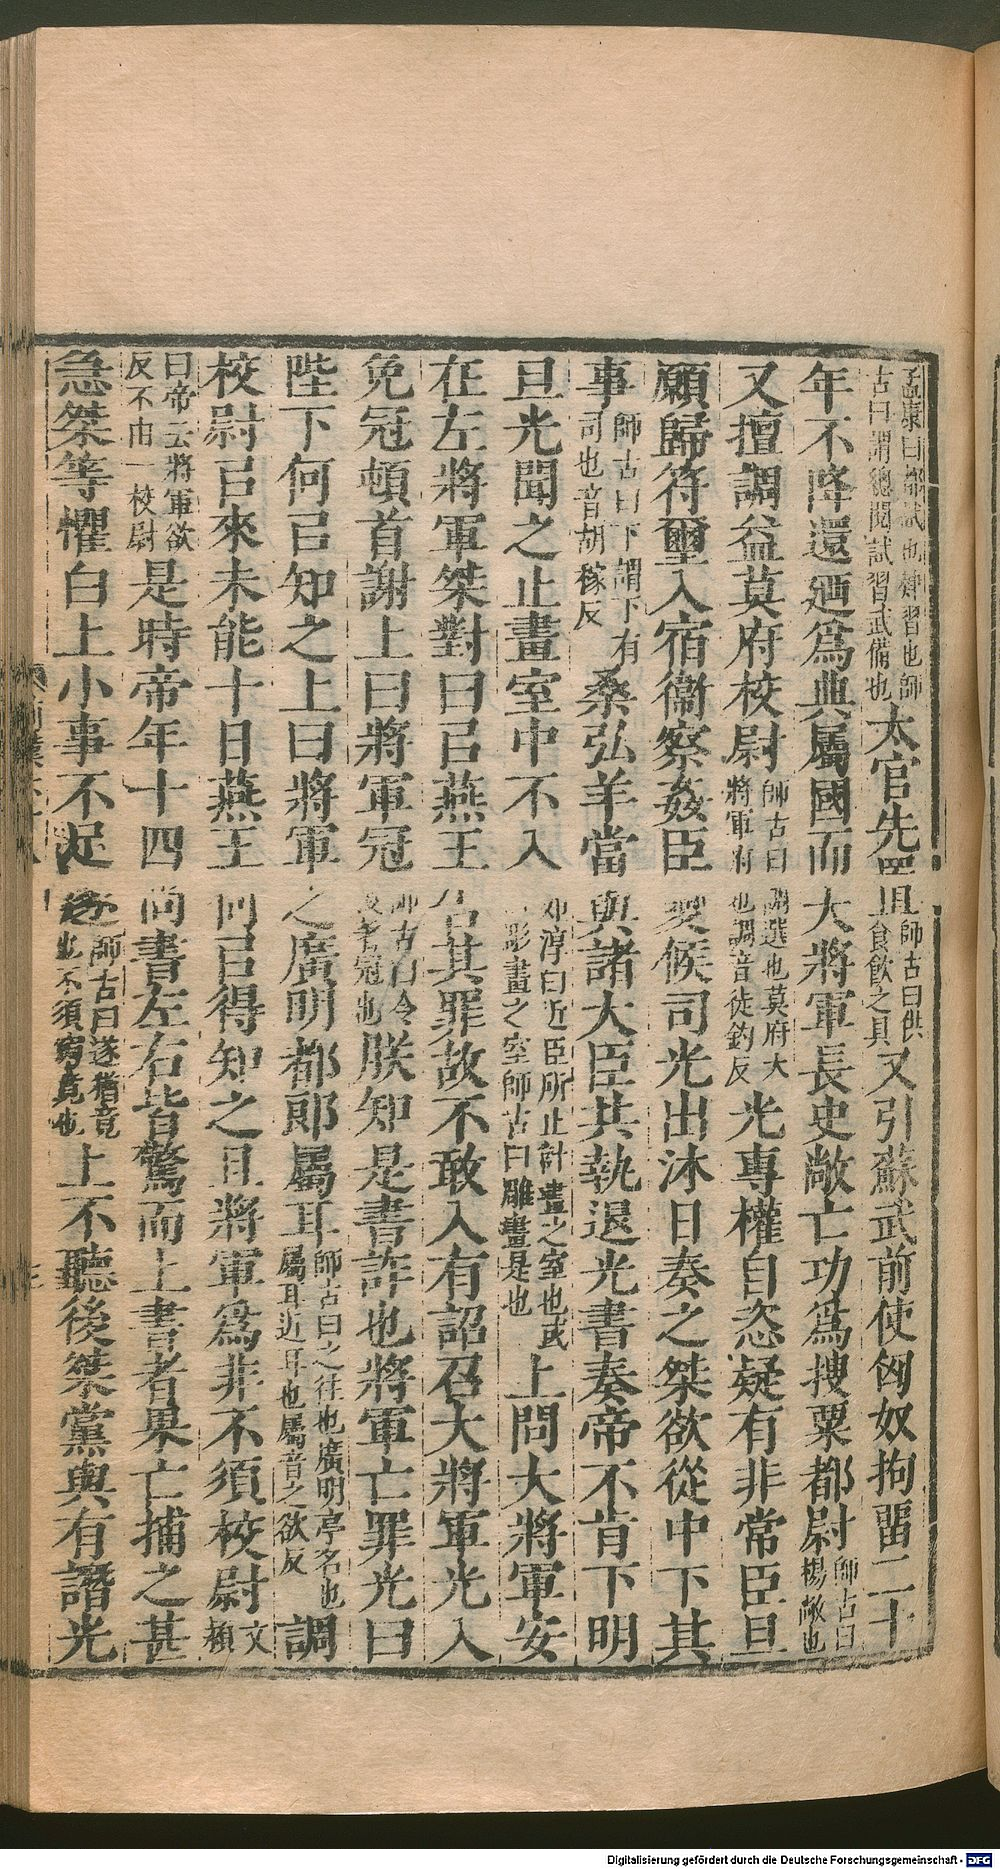 孟康曰都試也肄習也師古曰謂總閱試習武備也太官先置師古曰供食飲之具又引蘇武前使匈奴拘留二十
年不降還迺爲典屬國而大將軍長史敞亡功爲搜粟都尉師古曰楊敞也
又擅調益莫府校尉師古曰調選也莫府大將軍府也調音徒釣反光專權自恣疑有非常臣旦
願歸符璽入宿衞察姦臣變候司光出沐日奏之桀欲從中下其
事師古曰下謂下有司也音胡稼反桑弘羊當與諸大臣共執退光書奏帝不肯下明
旦光聞之止畫室中不入如淳曰近臣所止計畫之室也或曰彫畫之室師古曰雕畫是也上問大將軍安
在左將軍桀對曰㠯燕王告其罪故不敢入有詔召大將軍光入
免冠頓首謝上曰將軍冠師古曰令復著冠也朕知是書詐也將軍亡罪光曰
陛下何㠯知之上曰將軍之廣明都郎屬耳師古曰之往也廣明亭名也屬耳近耳也屬音之欲反調
校尉㠯來未能十日燕王何㠯得知之且將軍爲非不須校尉文穎
曰帝云將軍欲反不由一校尉是時帝年十四尚書左右皆驚而上書者果亡捕之甚
急桀等懼白上小事不足遂師古曰遂猶竟也不須窮竟也上不聽後桀黨與有譖光
Digitalisierung gefördert durch die Deutsche Forschungsgemeinschaft - DFG